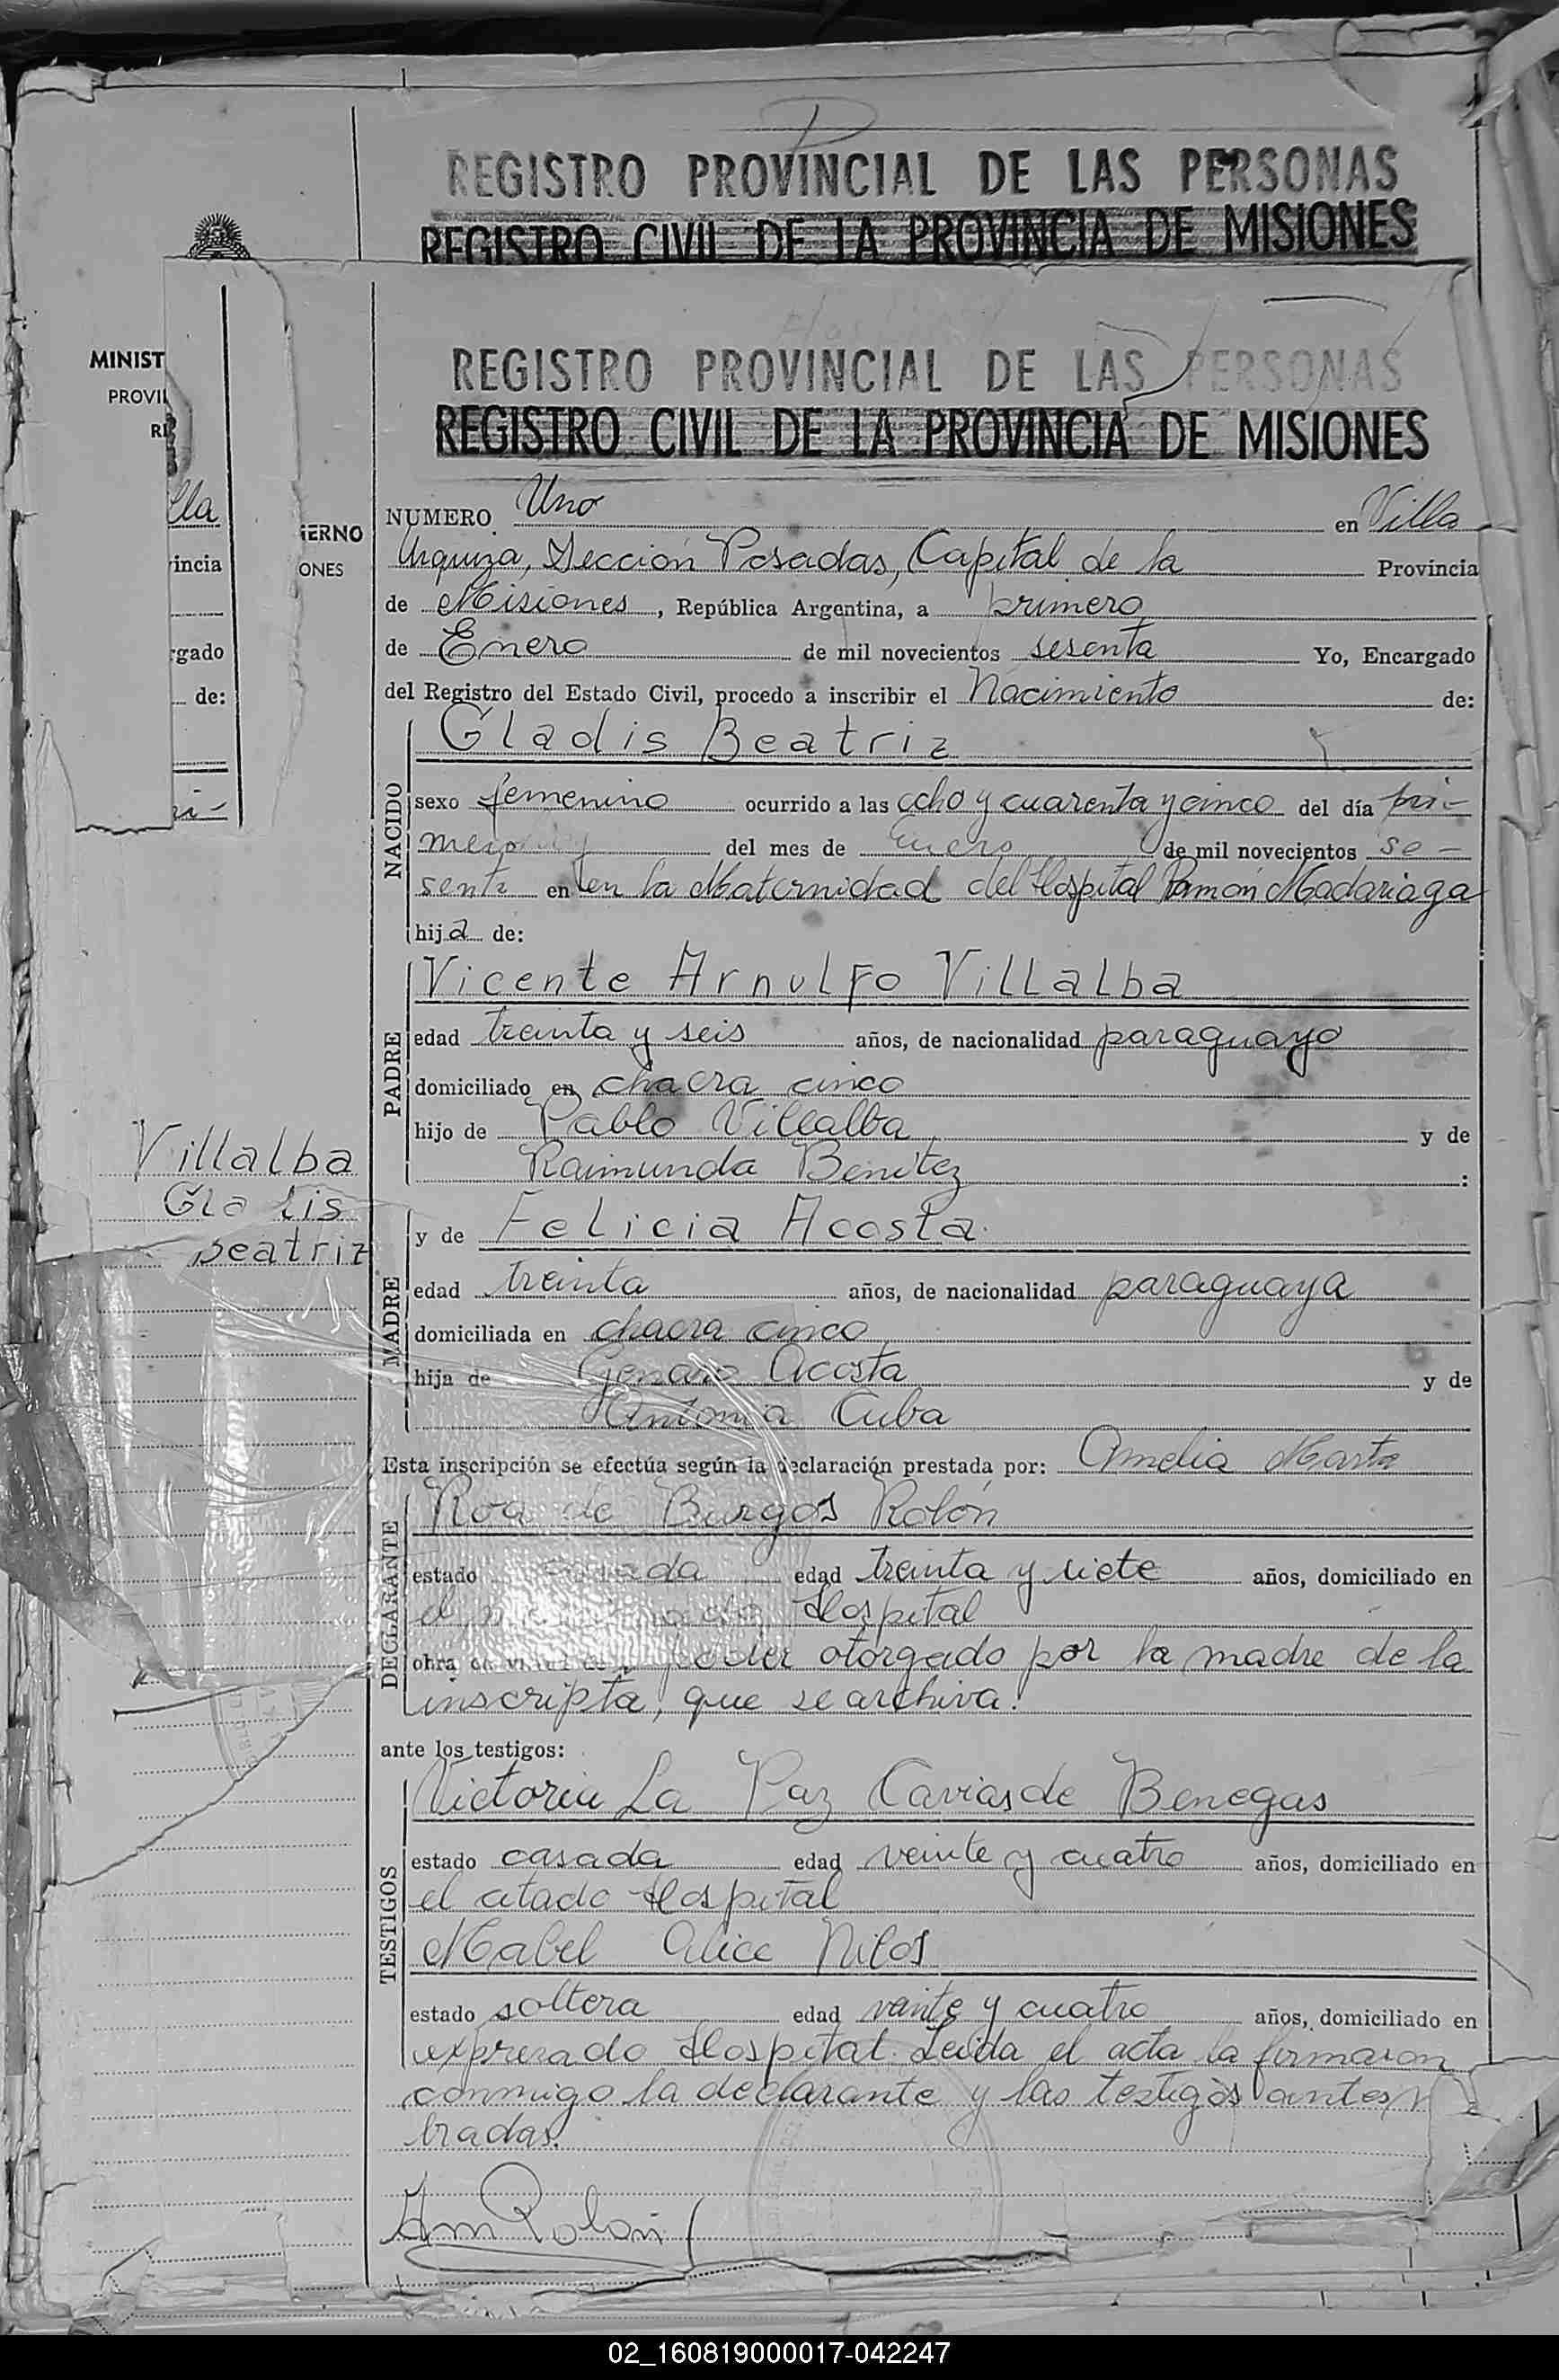 REGISTRO PROVINCIAL DE LAS PERSONAS
REGISTRO CIVIL DE LA PROVINCIA DE MISIONES
MINIST
PROVI
lla
incia
rgado
de:
IERNO
ONES
REGISTRO PROVINCIAL DE LAS PERSONAS
REGISTRO CIVIL DE LA PROVINCIA DE MISIONES
NUMERO Uno en Villa
Urquiza, Sección Posadas, Capital de la Provincia
de Misiones, República Argentina, a primero
de Enero de mil novecientos sesenta Yo, Encargado
del Registro del Estado Civil, procedo a inscribir el Nacimiento de:
NACIDO
Gladis Beatriz
sexo femenino ocurrido a las ocho y cuarenta y cinco del día pri-
mero del mes de Enero de mil novecientos se-
senta en en la Maternidad del Hospital Ramón Madariaga
hija de:
PADRE
Vicente Arnulfo Villalba
edad treinta y seis años, de nacionalidad paraguayo
domiciliado en chacra cinco
hijo de Pablo Villalba y de
Raimunda Benítez :
Villalba
Gladis
Beatriz
MADRE
y de Felicia Acosta.
edad treinta años, de nacionalidad paraguaya
domiciliada en chacra cinco
hija de Genaro Acosta y de
Antonia Cuba
Esta inscripción se efectúa según la declaración prestada por: Amelia Marta
DECLARANTE
Roa de Burgos Rolón
estado casada edad treinta y siete años, domiciliado en
el Hospital
obra en virtud de poder otorgado por la madre de la
inscripta, que se archiva.
ante los testigos:
TESTIGOS
Victoria La Paz Carias de Benegas
estado casada edad veinte y cuatro años, domiciliado en
el citado Hospital
Mabel Alice Nilos
estado soltera edad veinte y cuatro años, domiciliado en
expresado Hospital. Leida el acta la firmaron
conmigo la declarante y las testigos antes
bradas.
Am Rolón
02_160819000017-042247